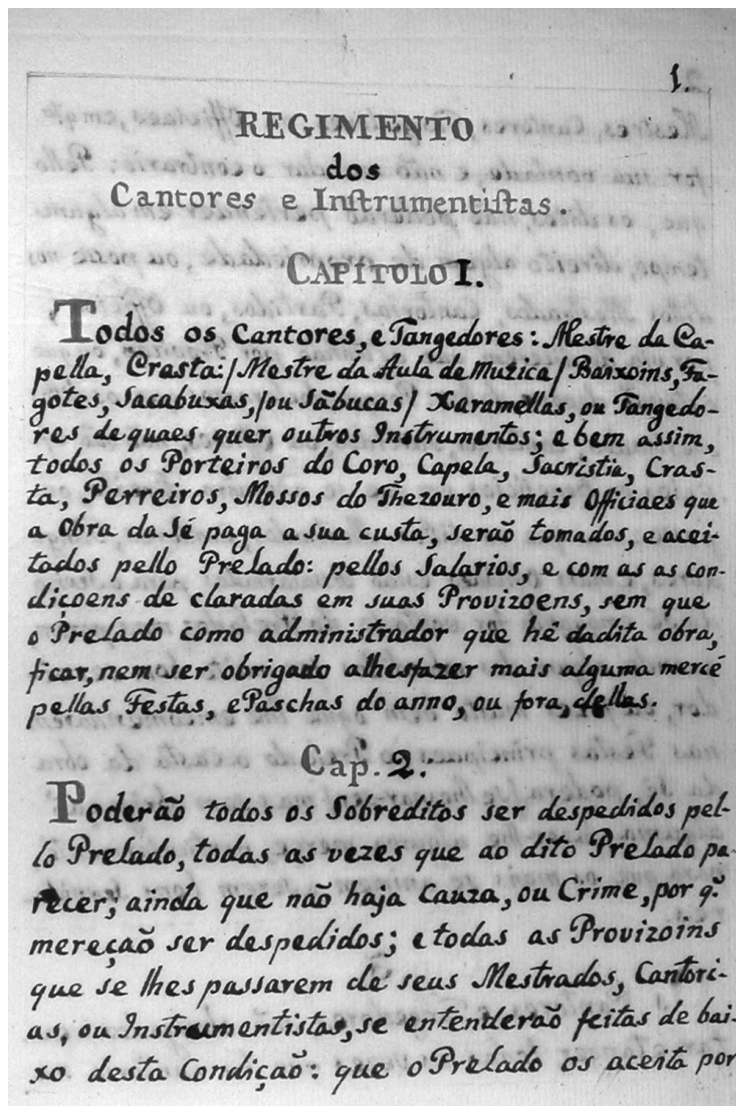 1.
REGIMENTO
dos
Cantores e Instrumentistas.
CAPÍTULO I.
Todos os Cantores, e Tangedores: Mestre da Ca-
pella, Crasta:/Mestre da Aula de Muzica/ Baixoins, Fa-
gotes, Sacabuxas, /ou Sãbucas/ Xaramellas, ou Tangedo-
res de quaes quer outros Instrumentos; e bem assim,
todos os Porteiros do Coro, Capela, Sacristia, Cras-
ta, Perreiros, Mossos do Thezouro, e mais Officiaes que
a Obra da Sé paga a sua custa, serão tomados, e acei-
tados pello Prelado: pellos Salarios, e com as as con-
diçoens de claradas em suas Provizoens, sem que
o Prelado como administrador que hé dadita obra,
ficar, nem ser obrigado alhesfazer mais alguma mercé
pellas Festas, e Paschas do anno, ou fora, dellas.
Cap. 2.
Poderão todos os Sobreditos ser despedidos pel-
lo Prelado, todas as vezes que ao dito Prelado pa-
recer; ainda que não haja Cauza, ou Crime, por q̃.
mereção ser despedidos; e todas as Provizoins
que se lhes passarem de seus Mestrados, Cantori-
as, ou Instrumentistas, se entenderão feitas de bai-
xo desta Condição: que o Prelado os aceita por